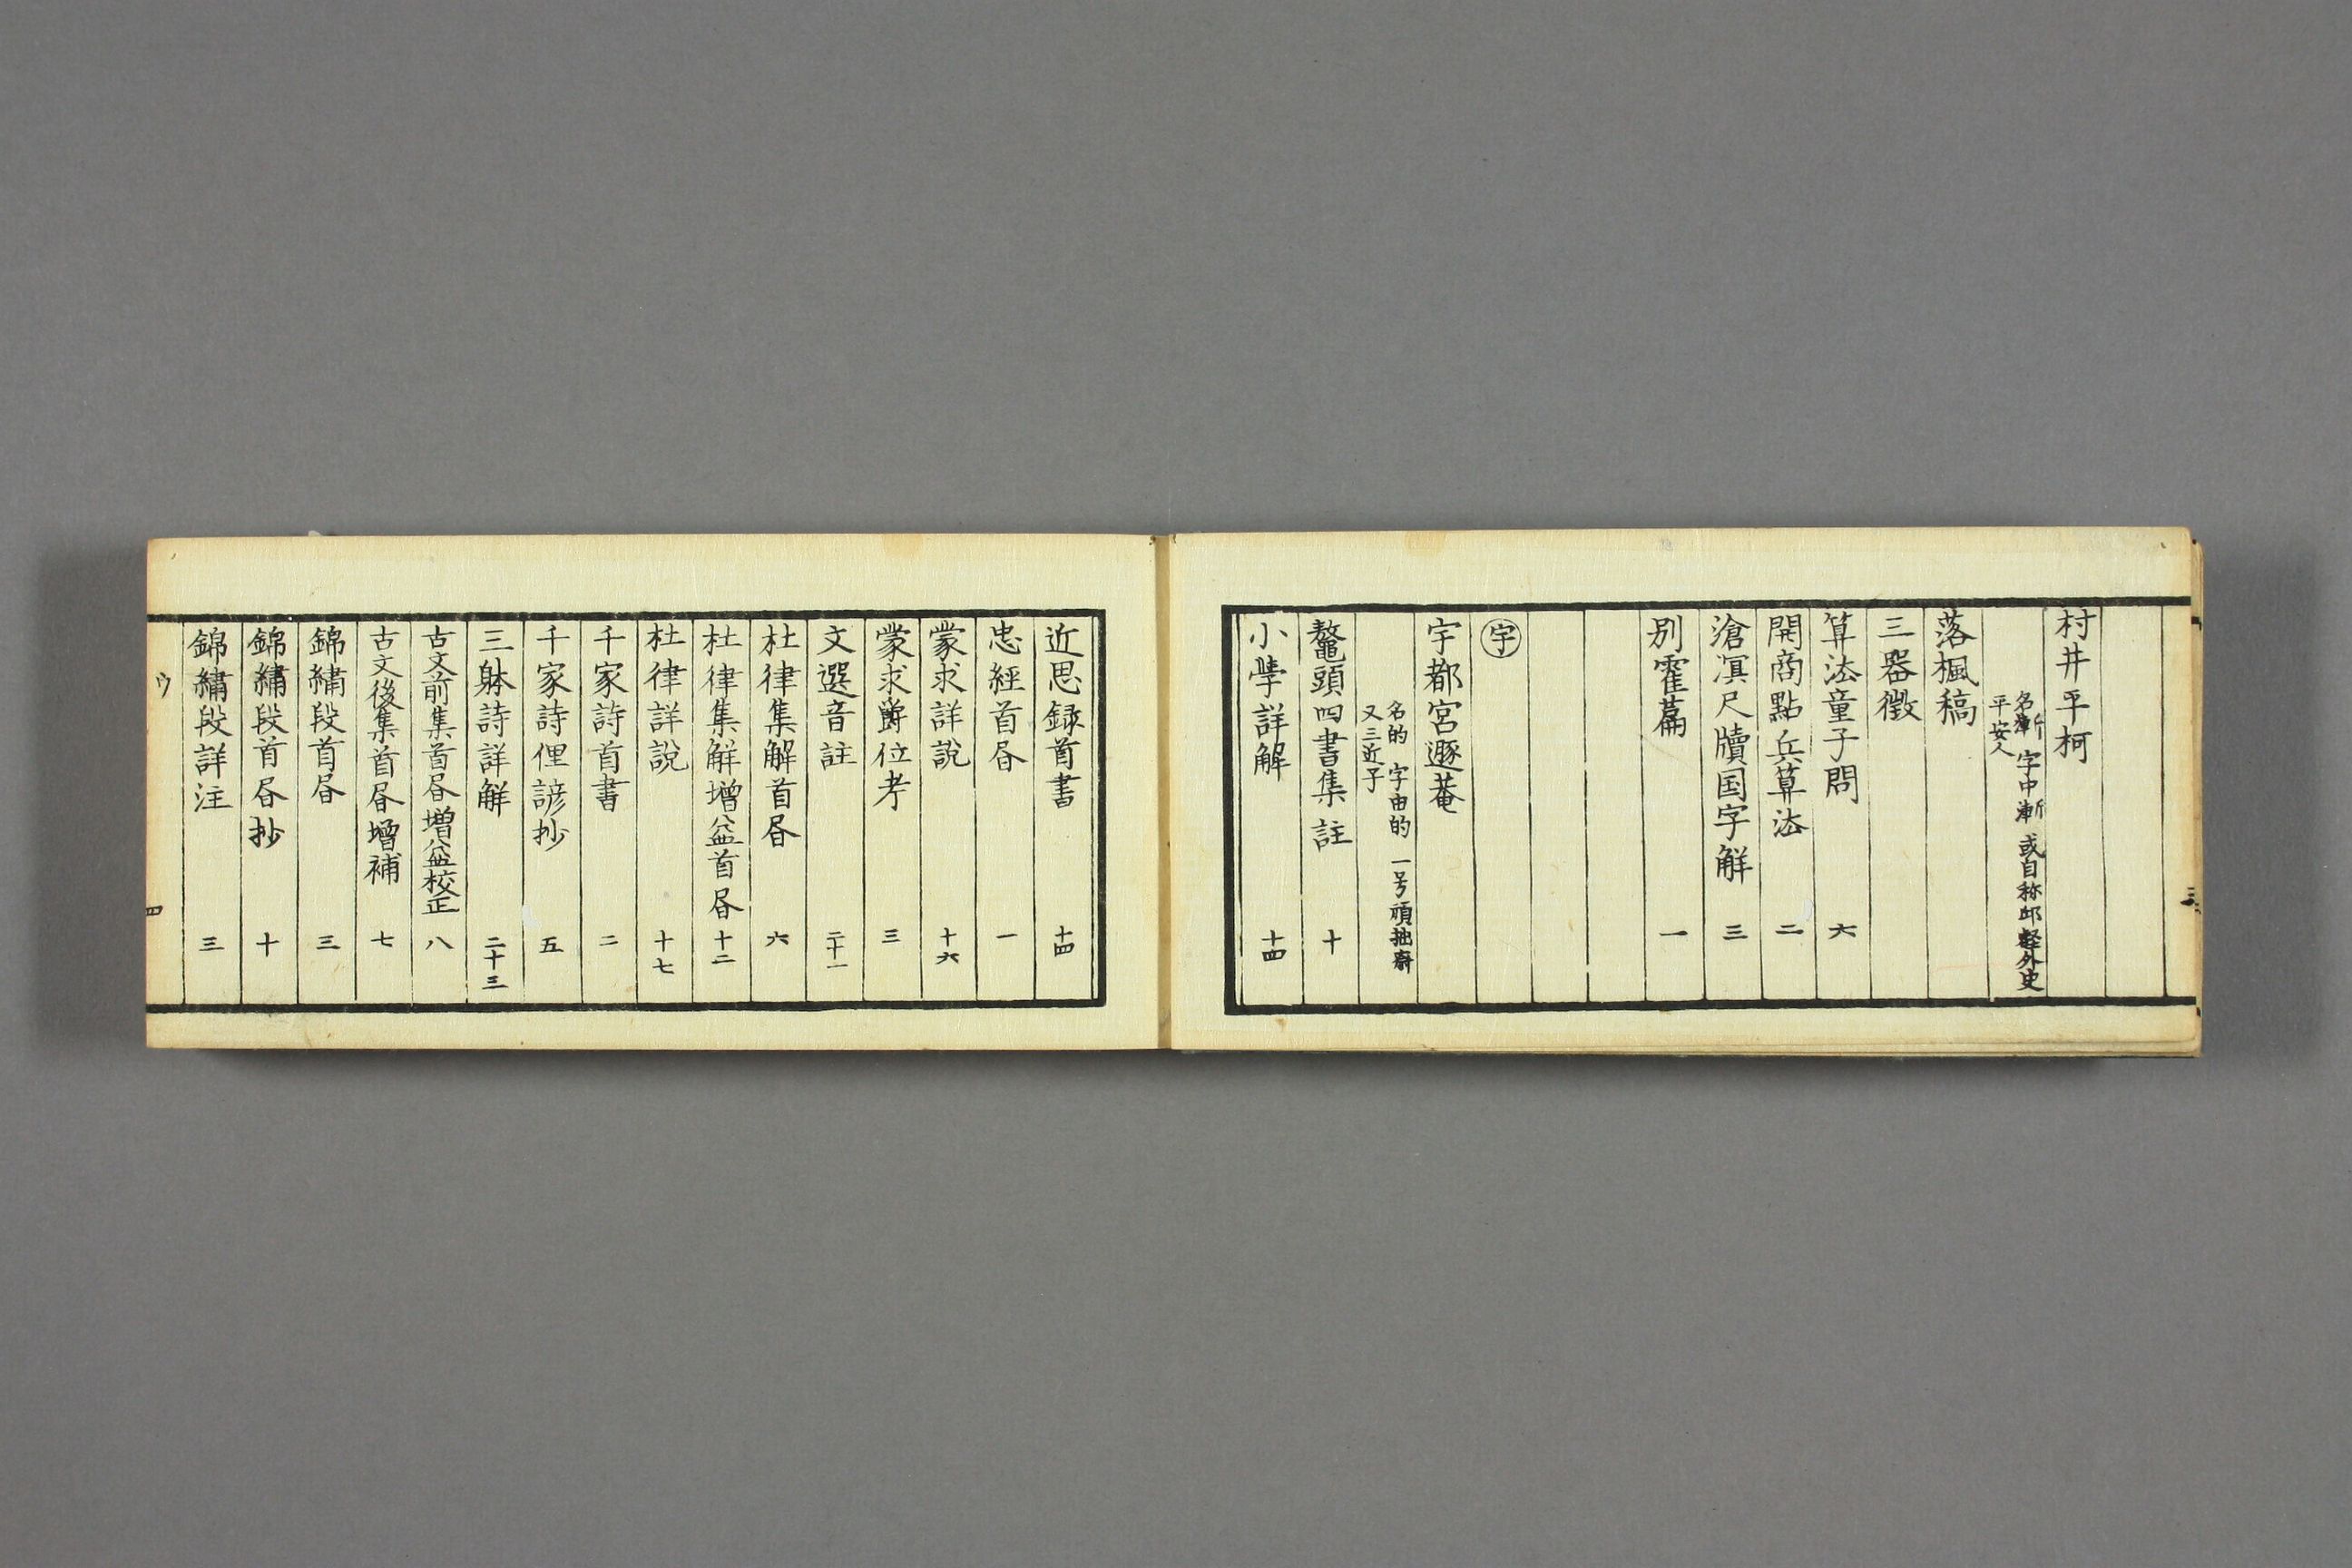 村井平柯
名漸 字中漸 或自称邱壑外史
平安人
落楓稿
三器徴
算法童子問 六
開商點兵算法 二
滄溟尺牘国字解 三
別霍篇 一
宇
宇都宮遯菴
名的 字由的 一号頑拙齋
又三近子
鼇頭四書集註 十
小學詳解 十四
近思録首書 十四
忠經首昏 一
蒙求詳説 十六
蒙求爵位考 三
文選音註 二十一
杜律集解首昏 六
杜律集解増益首昏 十二
杜律詳説 十七
千家詩首書 二
千家詩俚諺抄 五
三躰詩詳解 二十三
古文前集首昏増益校正 八
古文後集首昏增補 七
錦繡段首昏 三
錦繡段首昏抄 十
錦繡段詳注 三
ウ
四